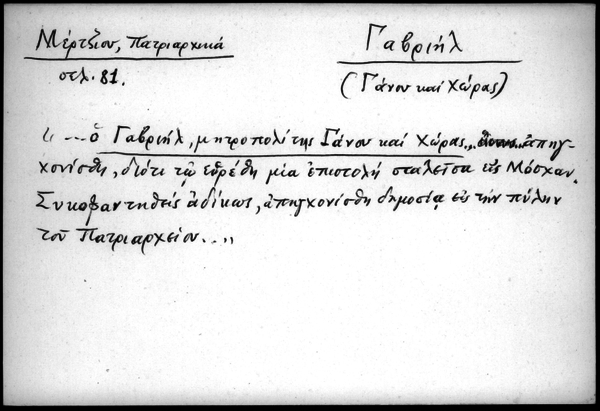 Μέρτζιου, Πατριαρχικά
σελ. 81.
Γαβριήλ
(Γάνου καὶ Χώρας)
"...ὁ Γαβριήλ, μητροπολίτης Γάνου καὶ Χώρας, ἀπηγ-
χονίσθη, διότι τῷ εὑρέθη μία ἐπιστολὴ σταλεῖσα εἰς Μόσχαν.
Συκοφαντηθεὶς ἀδίκως, ἀπηγχονίσθη δημοσίᾳ εἰς τὴν πύλην
τοῦ Πατριαρχείου..."